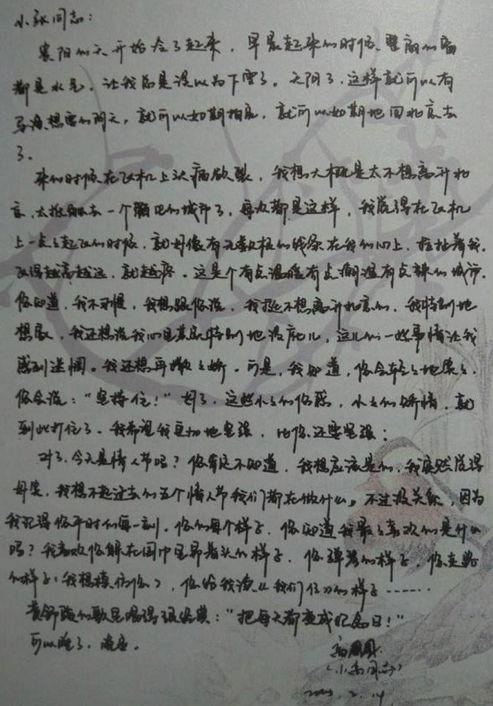 小张同志：
襄阳的天开始冷了起来，早晨起来的时候，里面的窗
都是水气，让我总是误以为下雪了。天阴了，这样就可以有
想雪的阴天，就可以如期拍戏，就可以如期地回北京去
了。
来的时候在飞机上头痛欲裂，我想大概是太不想离开北
京，太抵触去一个陌生的城市了，每次都是这样，我总觉得在飞机
上一点点起飞的时候，就好像有无数根的线系在我的心上，拉扯着我，
飞得越高越远，就越疼。这是个有点温暖有点潮湿有点辣的城市。
你知道，我不习惯，我想跟你说，我挺不想离开北京的，我特别地
想家，我还想说我心里其实特别地没底儿，这儿的一些事情让我
感到迷惘。我还想再撒撒娇。可是，我知道，你会轻轻地
你会说："坚持住！"对了，这些小小的伤感，小小的矫情，就
到此打住了。我希望我真切地坚强，比你还要坚强；
对了，今天是情人节吗？你有没有不知道，我想应该是的，我突然觉得
好笑，我想不起过去的五个情人节我们都在做什么。不过没关系，因为
我记得你平时的每一刻，你的每个样子，你知道我最喜欢的是什么
吗？我喜欢你解在围巾里昂着头的样子，你弹琴的样子，你走路
的样子（我想模仿你），你给我读《我们仨》的样子……
黄舒骏的歌里唱得很好："把每天都变成纪念日！"
可以睡了，晚安。
（小 同志）
2.14